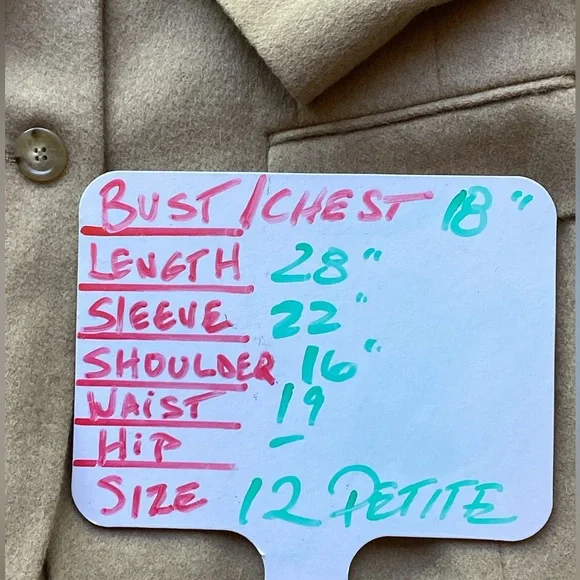 BUST/CHEST 18"
LENGTH 28"
SLEEVE 22"
SHOULDER 16"
WAIST 19
HIP –
SIZE 12 PETITE